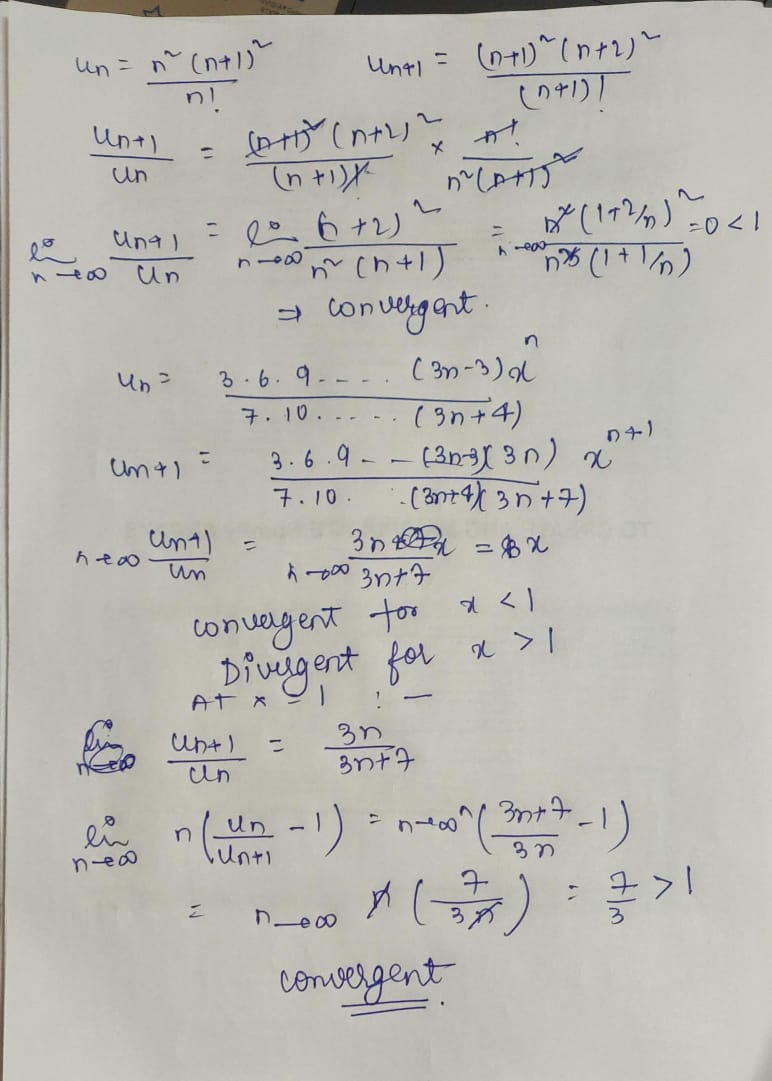 un = n² (n+1)² / n!    un+1 = (n+1)² (n+2)² / (n+1)!
un+1 / un = (n+1)² (n+2)² / (n+1)! × n! / n² (n+1)²
lim n→∞ un+1 / un = lim n→∞ (n+2)² / n² (n+1) = n→∞ n² (1+2/n)² / n³ (1+1/n) = 0 < 1
⇒ convergent.
un = 3.6.9----. (3n-3) xⁿ / 7.10.----. (3n+4)
un+1 = 3.6.9-- (3n-3)(3n) xⁿ⁺¹ / 7.10. .(3n+4)(3n+7)
n→∞ un+1 / un = n→∞ 3n x / 3n+7 = x
convergent for x < 1
Divergent for x > 1
At x = 1 : —
un+1 / un = 3n / 3n+7
lim n→∞ n(un / un+1 - 1) = n→∞ n(3n+7 / 3n - 1)
= n→∞ n (7 / 3n) = 7/3 > 1
convergent.